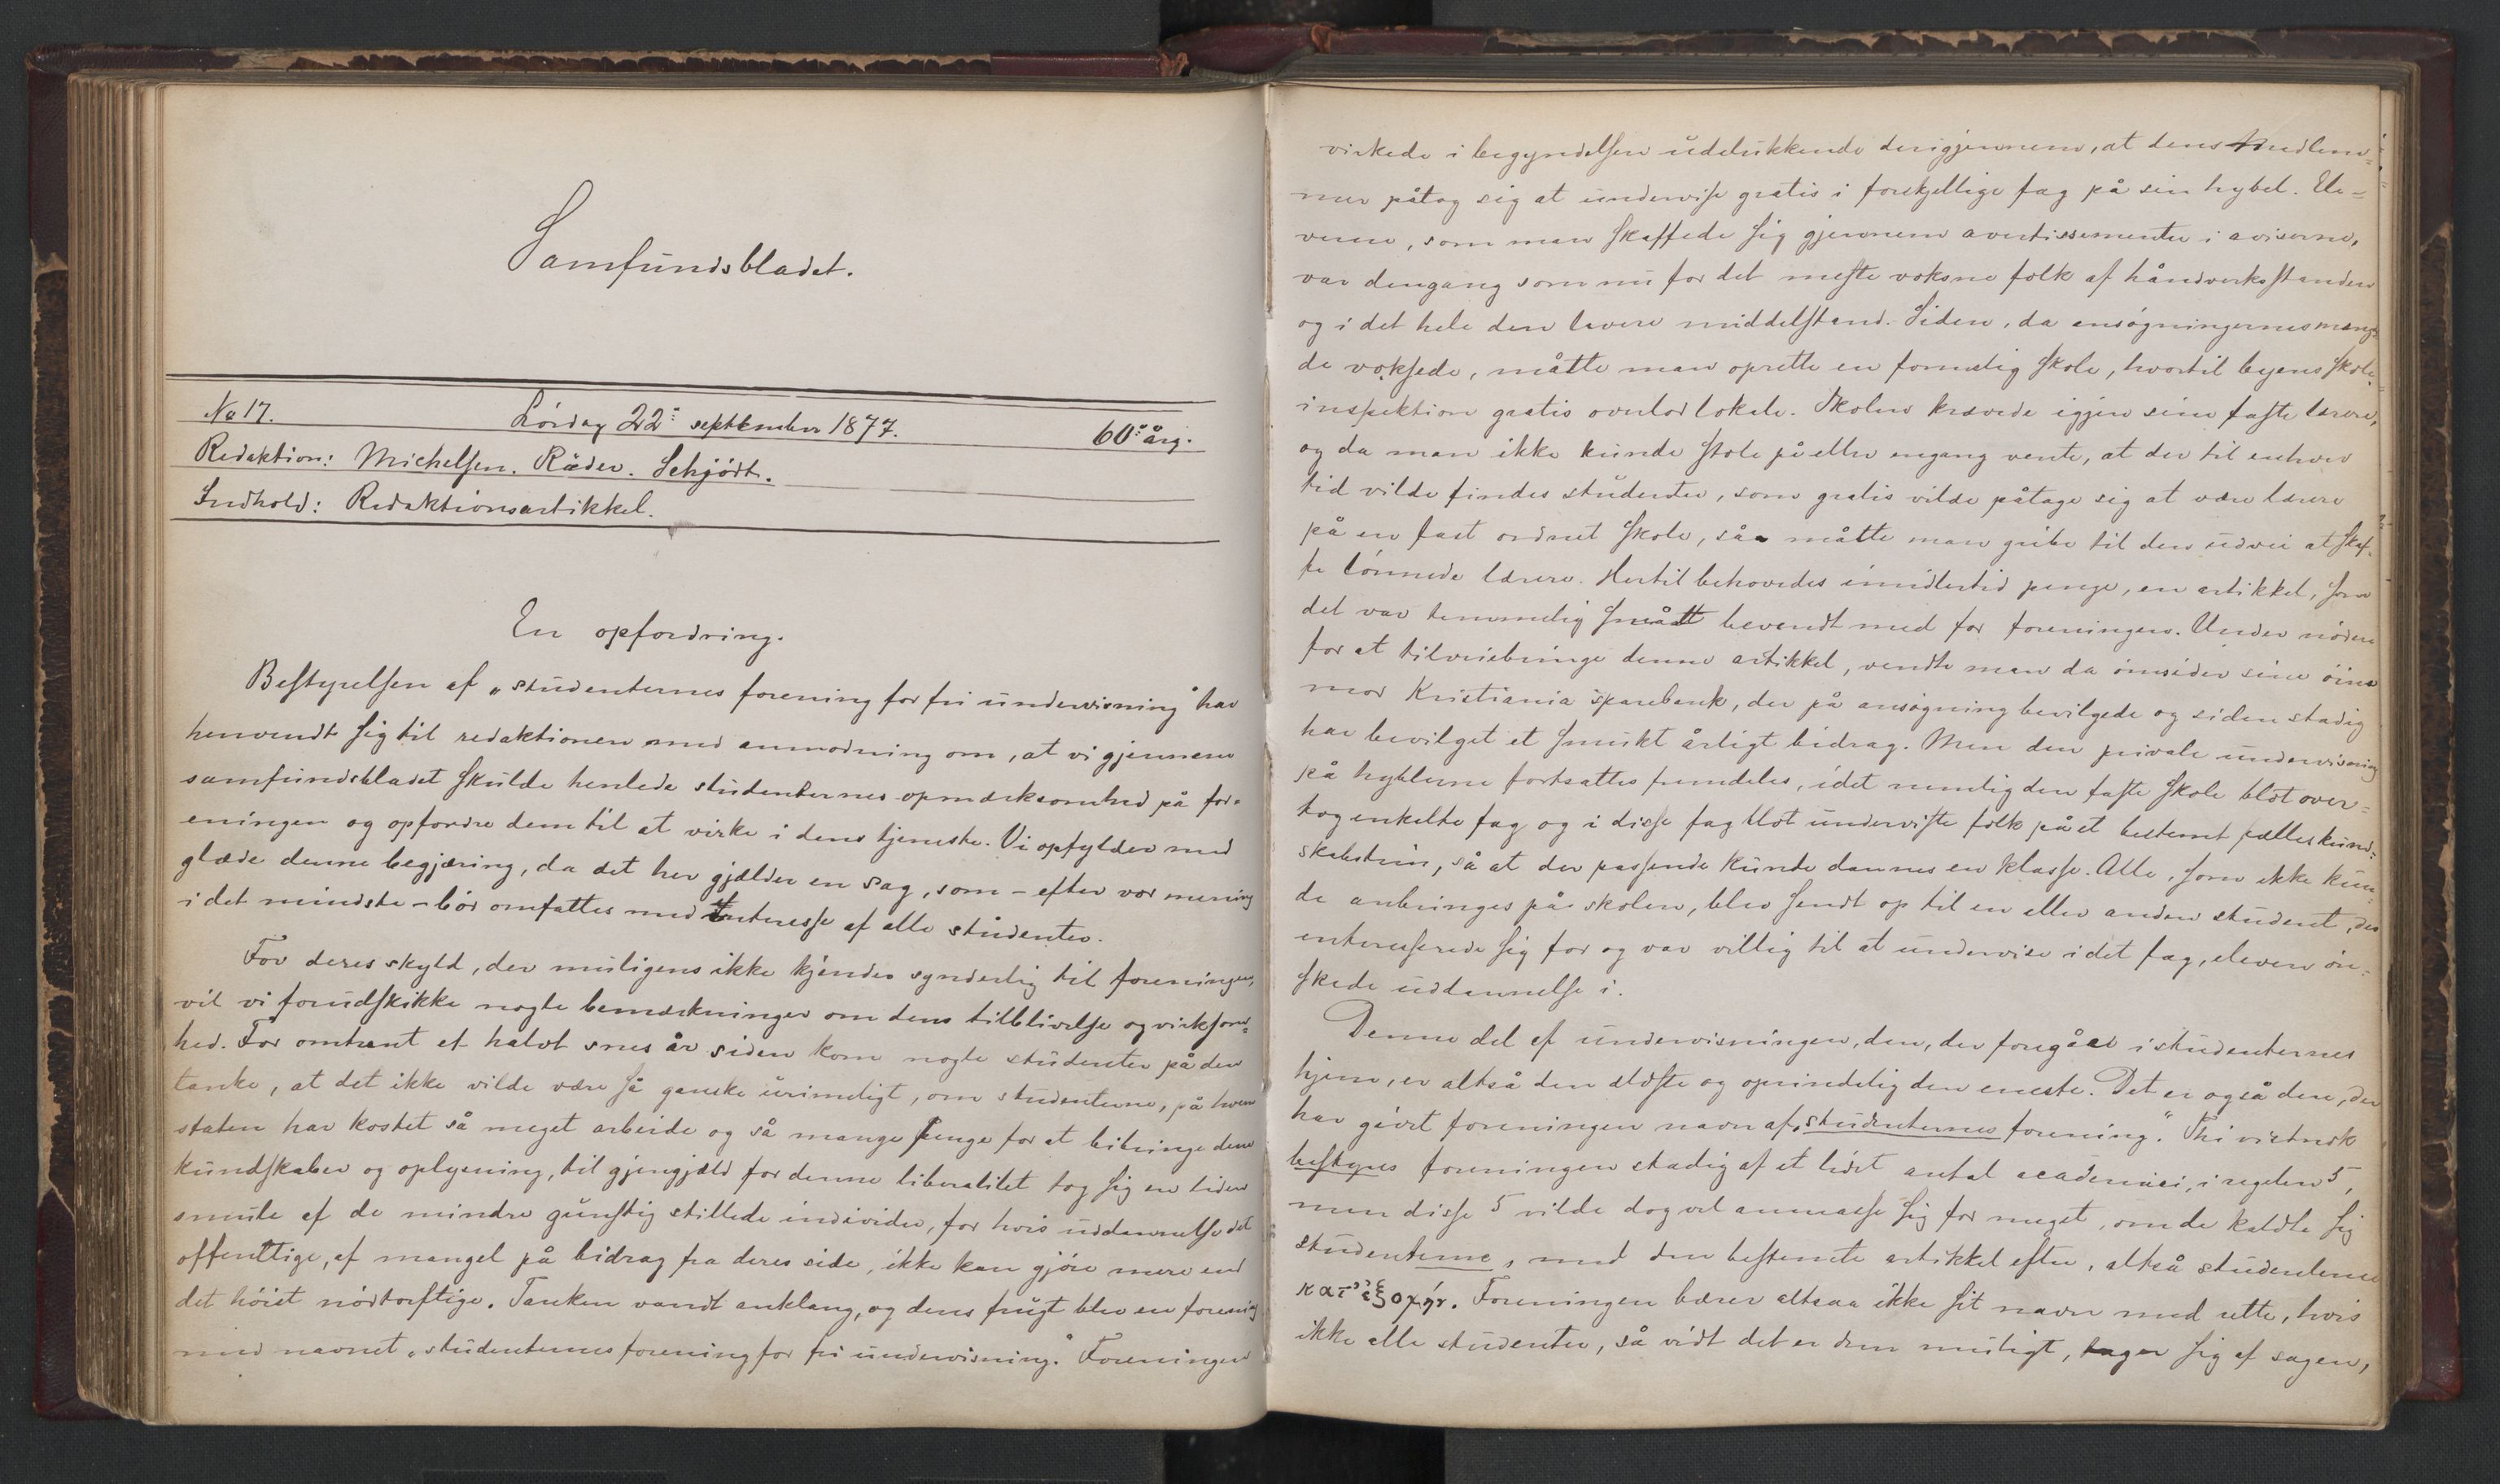 Samfundsbladet.
No 17. Lördag 22: september 1877. 60: årg.
Redaktion: Michelsen. Räder. Schjödt.
Indhold: Redaktionsartikkel.
En opfordring.
Bestyrelsen af „studenternes forening for fri undervisning" har
henvendt sig til redaktionen med anmodning om, at vi gjennem
samfundsbladet skulde henlede studenternes opmærksomhed på for=
eningen og opfordre dem til at virke i dens tjeneste. Vi opfylder med
glæde denne begjæring, da det her gjælder en sag, som – efter vor mening
i det mindste – bör omfattes med interesse af alle studenter.
For deres skyld, der muligens ikke kjender synderlig til foreningen,
vil vi forudskikke nogle bemærkninger om dens tilblivelse og virksom=
hed. For omtrent et halvt snes år siden kom nogle studenter på den
tanke, at det ikke vilde være så ganske urimeligt, om studenterne, på hvem
staten har kostet så meget arbeide og så mange penge for at bibringe dem
kundskaber og oplysning, til gjengjæld for denne liberalitet tog sig en liden
smule af de mindre gunstig stillede individer, for hvis uddannelse det
offentlige, af mangel på bidrag fra deres side, ikke kan gjöre mere end
det höist nödtörftige. Tanken vandt anklang, og dens frugt blev en forening
med navnet „studenternes forening for fri undervisning." Foreningen
virkede i begyndelsen udelukkende derigjennem, at dens medlem=
mer påtog sig at undervise gratis i forskjellige fag på sin hybel. Ele=
verne, som man skaffede sig gjennem avertissementer i aviserne,
var dengang som nu for det meste voksne folk af håndverksstanden
og i det hele den lavere middelstand. Siden, da ansögningernes mæng=
de voksede, måtte man oprette en formelig skole, hvortil byens skole=
inspektion gratis overlod lokale. Skolen krævede igjen sine faste lærere,
og da man ikke kunde stole på eller engang vente, at der til enhver
tid vilde findes studenter, som gratis vilde påtage sig at være lærere
på en fast ordnet skole, så måtte man gribe til den udvei at skaf=
fe lönnede lærere. Hertil behövedes imidlertid penge, en artikkel, som
det var temmelig småt bevendt med for foreningen. Under nöden
for at tilveiebringe denne artikkel, vendte man da omsider sine öine
mod Kristiania sparebank, der på ansögning bevilgede og siden stadig
har bevilget et smukt årligt bidrag. Men den private undervisning
på hyblerne fortsattes fremdeles, idet nemlig den faste skole blot over=
tog enkelte fag og i disse fag blot underviste folk på et bestemt fælles kund=
skabstrin, så at der passende kunde dannes en klasse. Alle, som ikke kun=
de anbringes på skolen, blev sendt op til en eller anden student, der
interesserede sig for og var villig til at undervise i det fag, eleven ön=
skede uddannelse i.
Denne del af undervisningen, den, der foregår i studenternes
hjem, er altså den ældste og oprindelig den eneste. Det er også den, der
har givet foreningen navn af „studenternes forening." Thi vistnok
bestyres foreningen stadig af et lidet antal academici, i regelen 5,
men disse 5 vilde dog vel anmasse sig for meget, om de kaldte sig
studenterne, med den bestemte artikkel efter, altså studenterne
κατ' ἐξοχήν. Foreningen bærer altsaa ikke sit navn med rette, hvis
ikke alle studenter, så vidt det er dem muligt, tager sig af sagen,